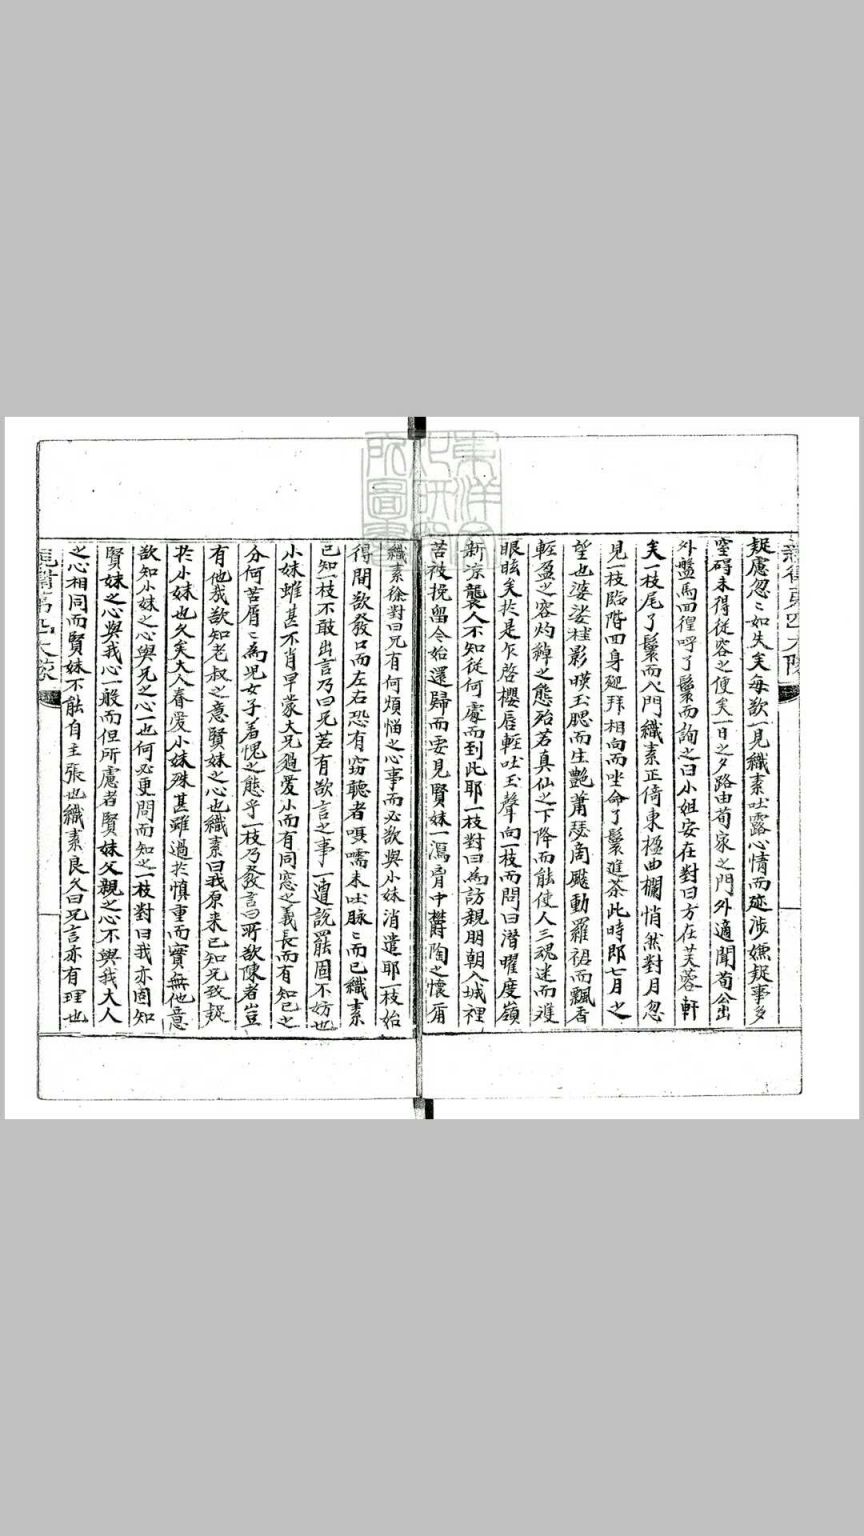 疑慮忽〻如失矣每欲一見織素吐露心情而跡涉嫌疑事多
窒碍未得從容之便矣一日之夕路由荀家之門外適聞荀公出
外盤馬回徨呼了鬟而詢之曰小姐安在對曰方在芙蓉軒
矣一枝尾了鬟而入門織素正倚東楹曲欄悄然對月忽
見一枝臨階回身迎拜相向而坐命了鬟進茶此時即七月之
望也婆娑桂影暎玉腮而生艶蕭瑟商颷動羅裙而飄香
輕盈之容灼綽之態殆若真仙之下降而能使人三魂迷而雙
眼眩矣於是乍啓櫻唇輕吐玉聲向一枝而問曰潜曜度嶺
新凉襲人不知從何處而到此耶一枝對曰為訪親朋朝入城裡
苦被挽留今始還歸而要見賢妹一瀉胷中欝陶之懷爾
織素徐對曰兄有何煩惱之心事而必欲與小妹消遣耶一枝始
得間欲發口而左右恐有窃聽者嗫嚅未吐脉〻而已織素
已知一枝不敢出言乃曰兄若有欲言之事一遭說罷固不妨也
小妹雖甚不肖早蒙大兄過愛小而有同窓之義長而有知己之
分何苦屑〻為兒女子羞愧之態乎一枝乃發言曰所欲陳者豈
有他哉欲知老叔之意賢妹之心也織素曰我原来已知兄致疑
於小妹也久矣大人眷愛小妹殊甚雖過於慎重而實無他意
欲知小妹之心與兄之心一也何必更問而知之一枝對曰我亦固知
賢妹之心與我心一般而但所慮者賢妹父親之心不與我大人
之心相同而賢妹不能自主張也織素良久曰兄言亦有理也